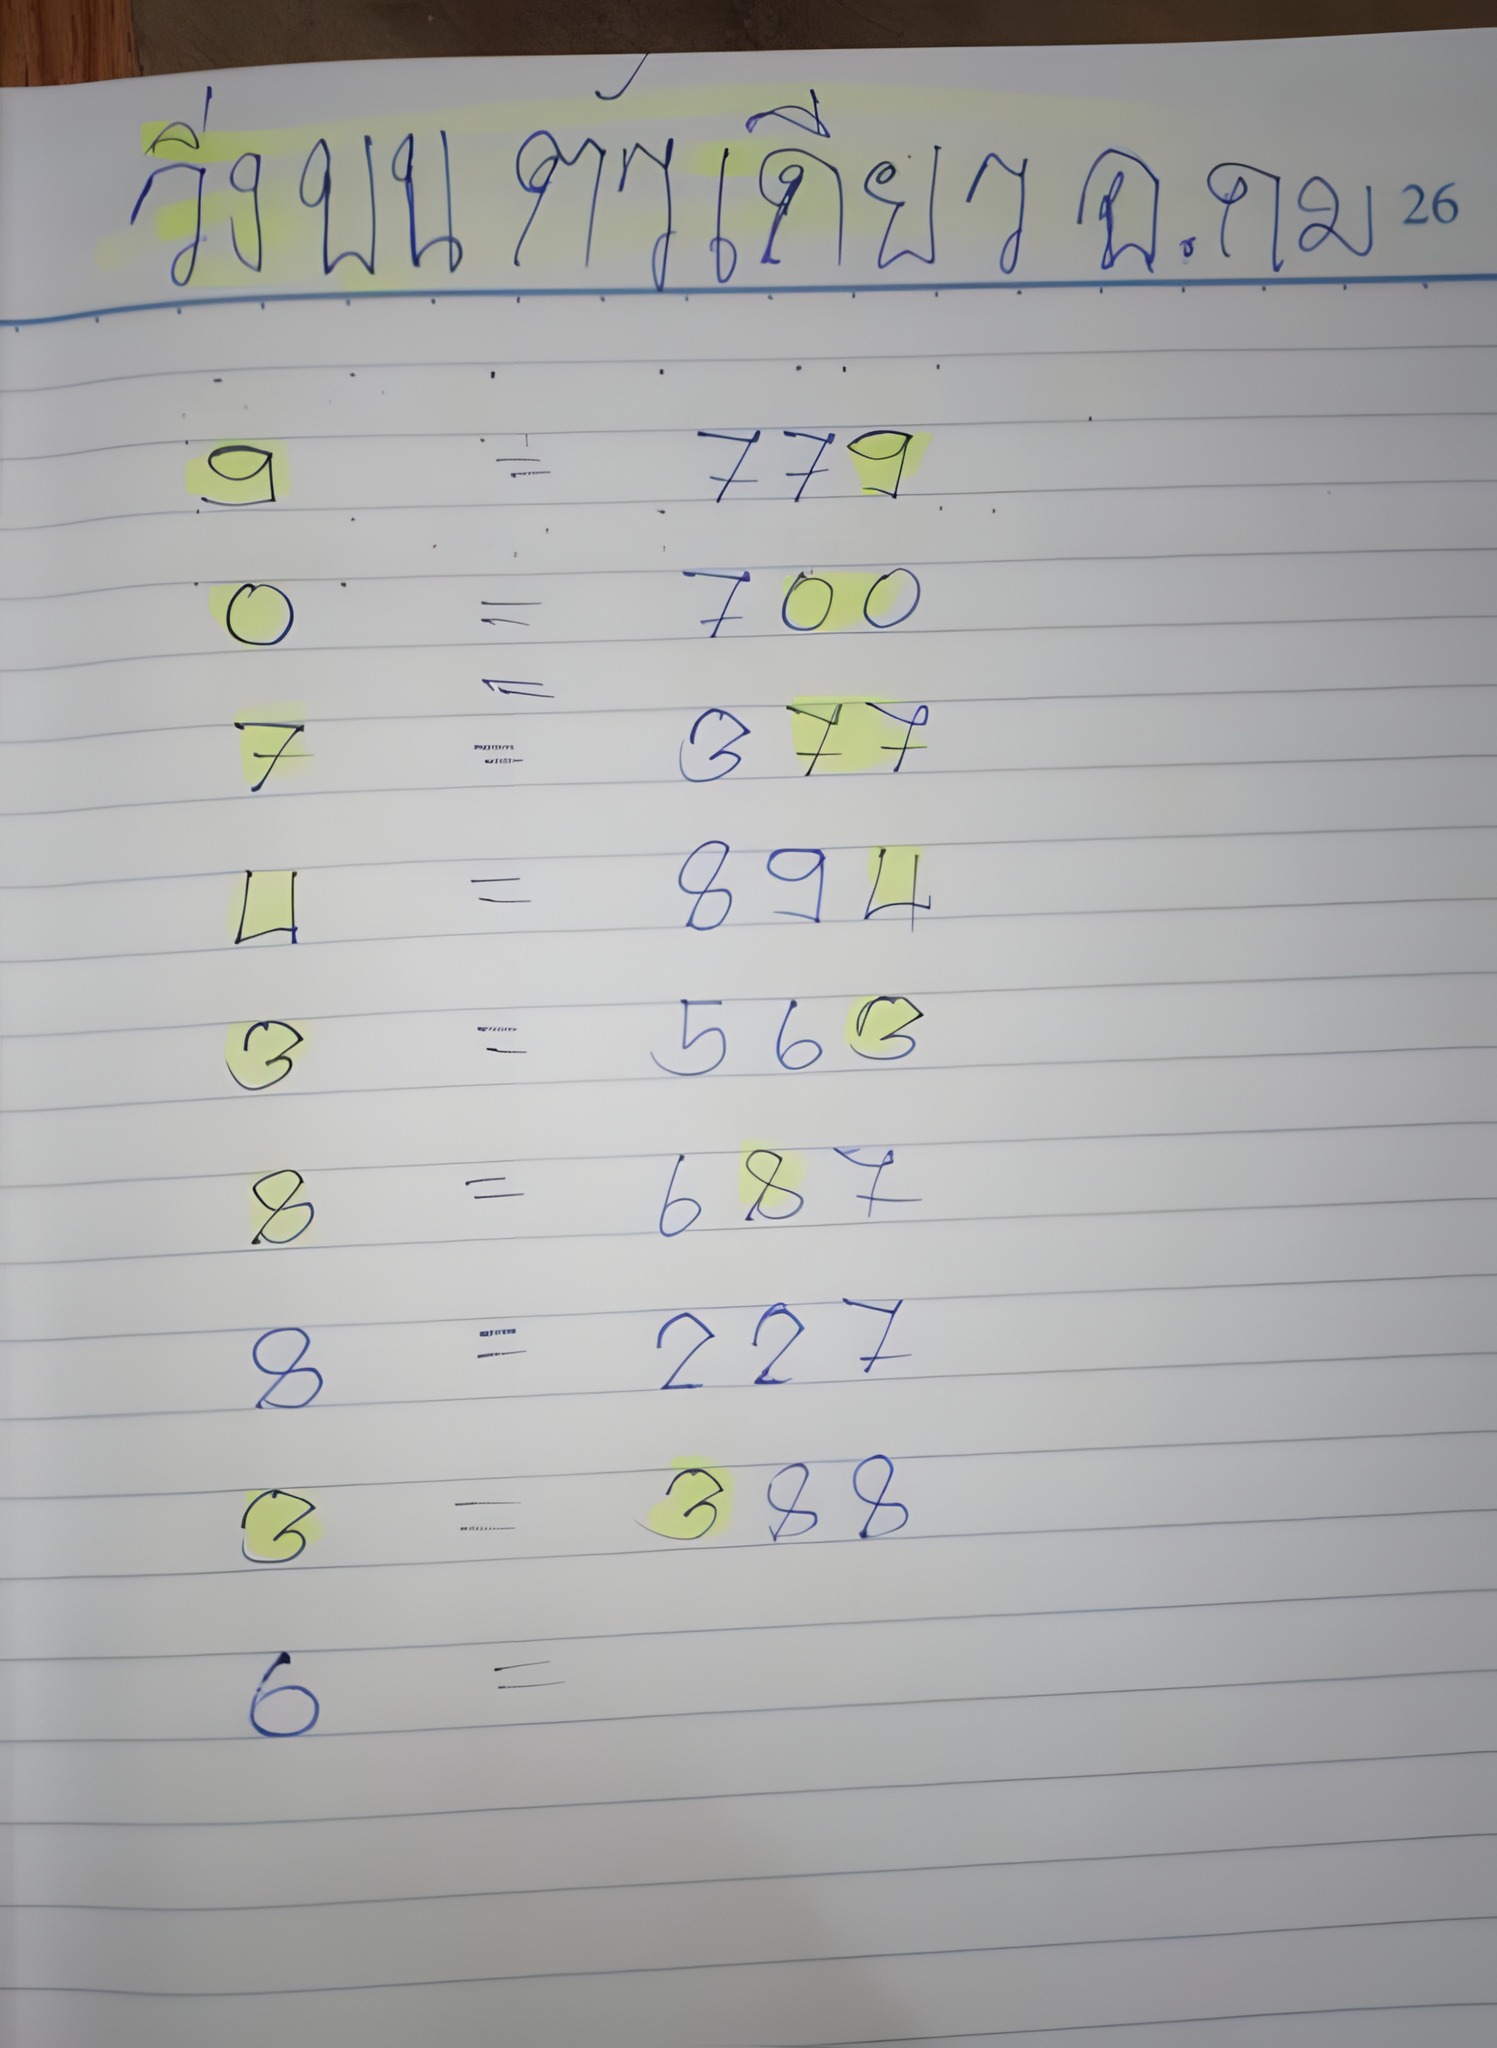 วิ่งบน ตัวเดียว อ.คม 26
9 = 779
0 = 700
=
7 = 377
4 = 894
3 = 563
8 = 687
8 = 227
3 = 388
6 =